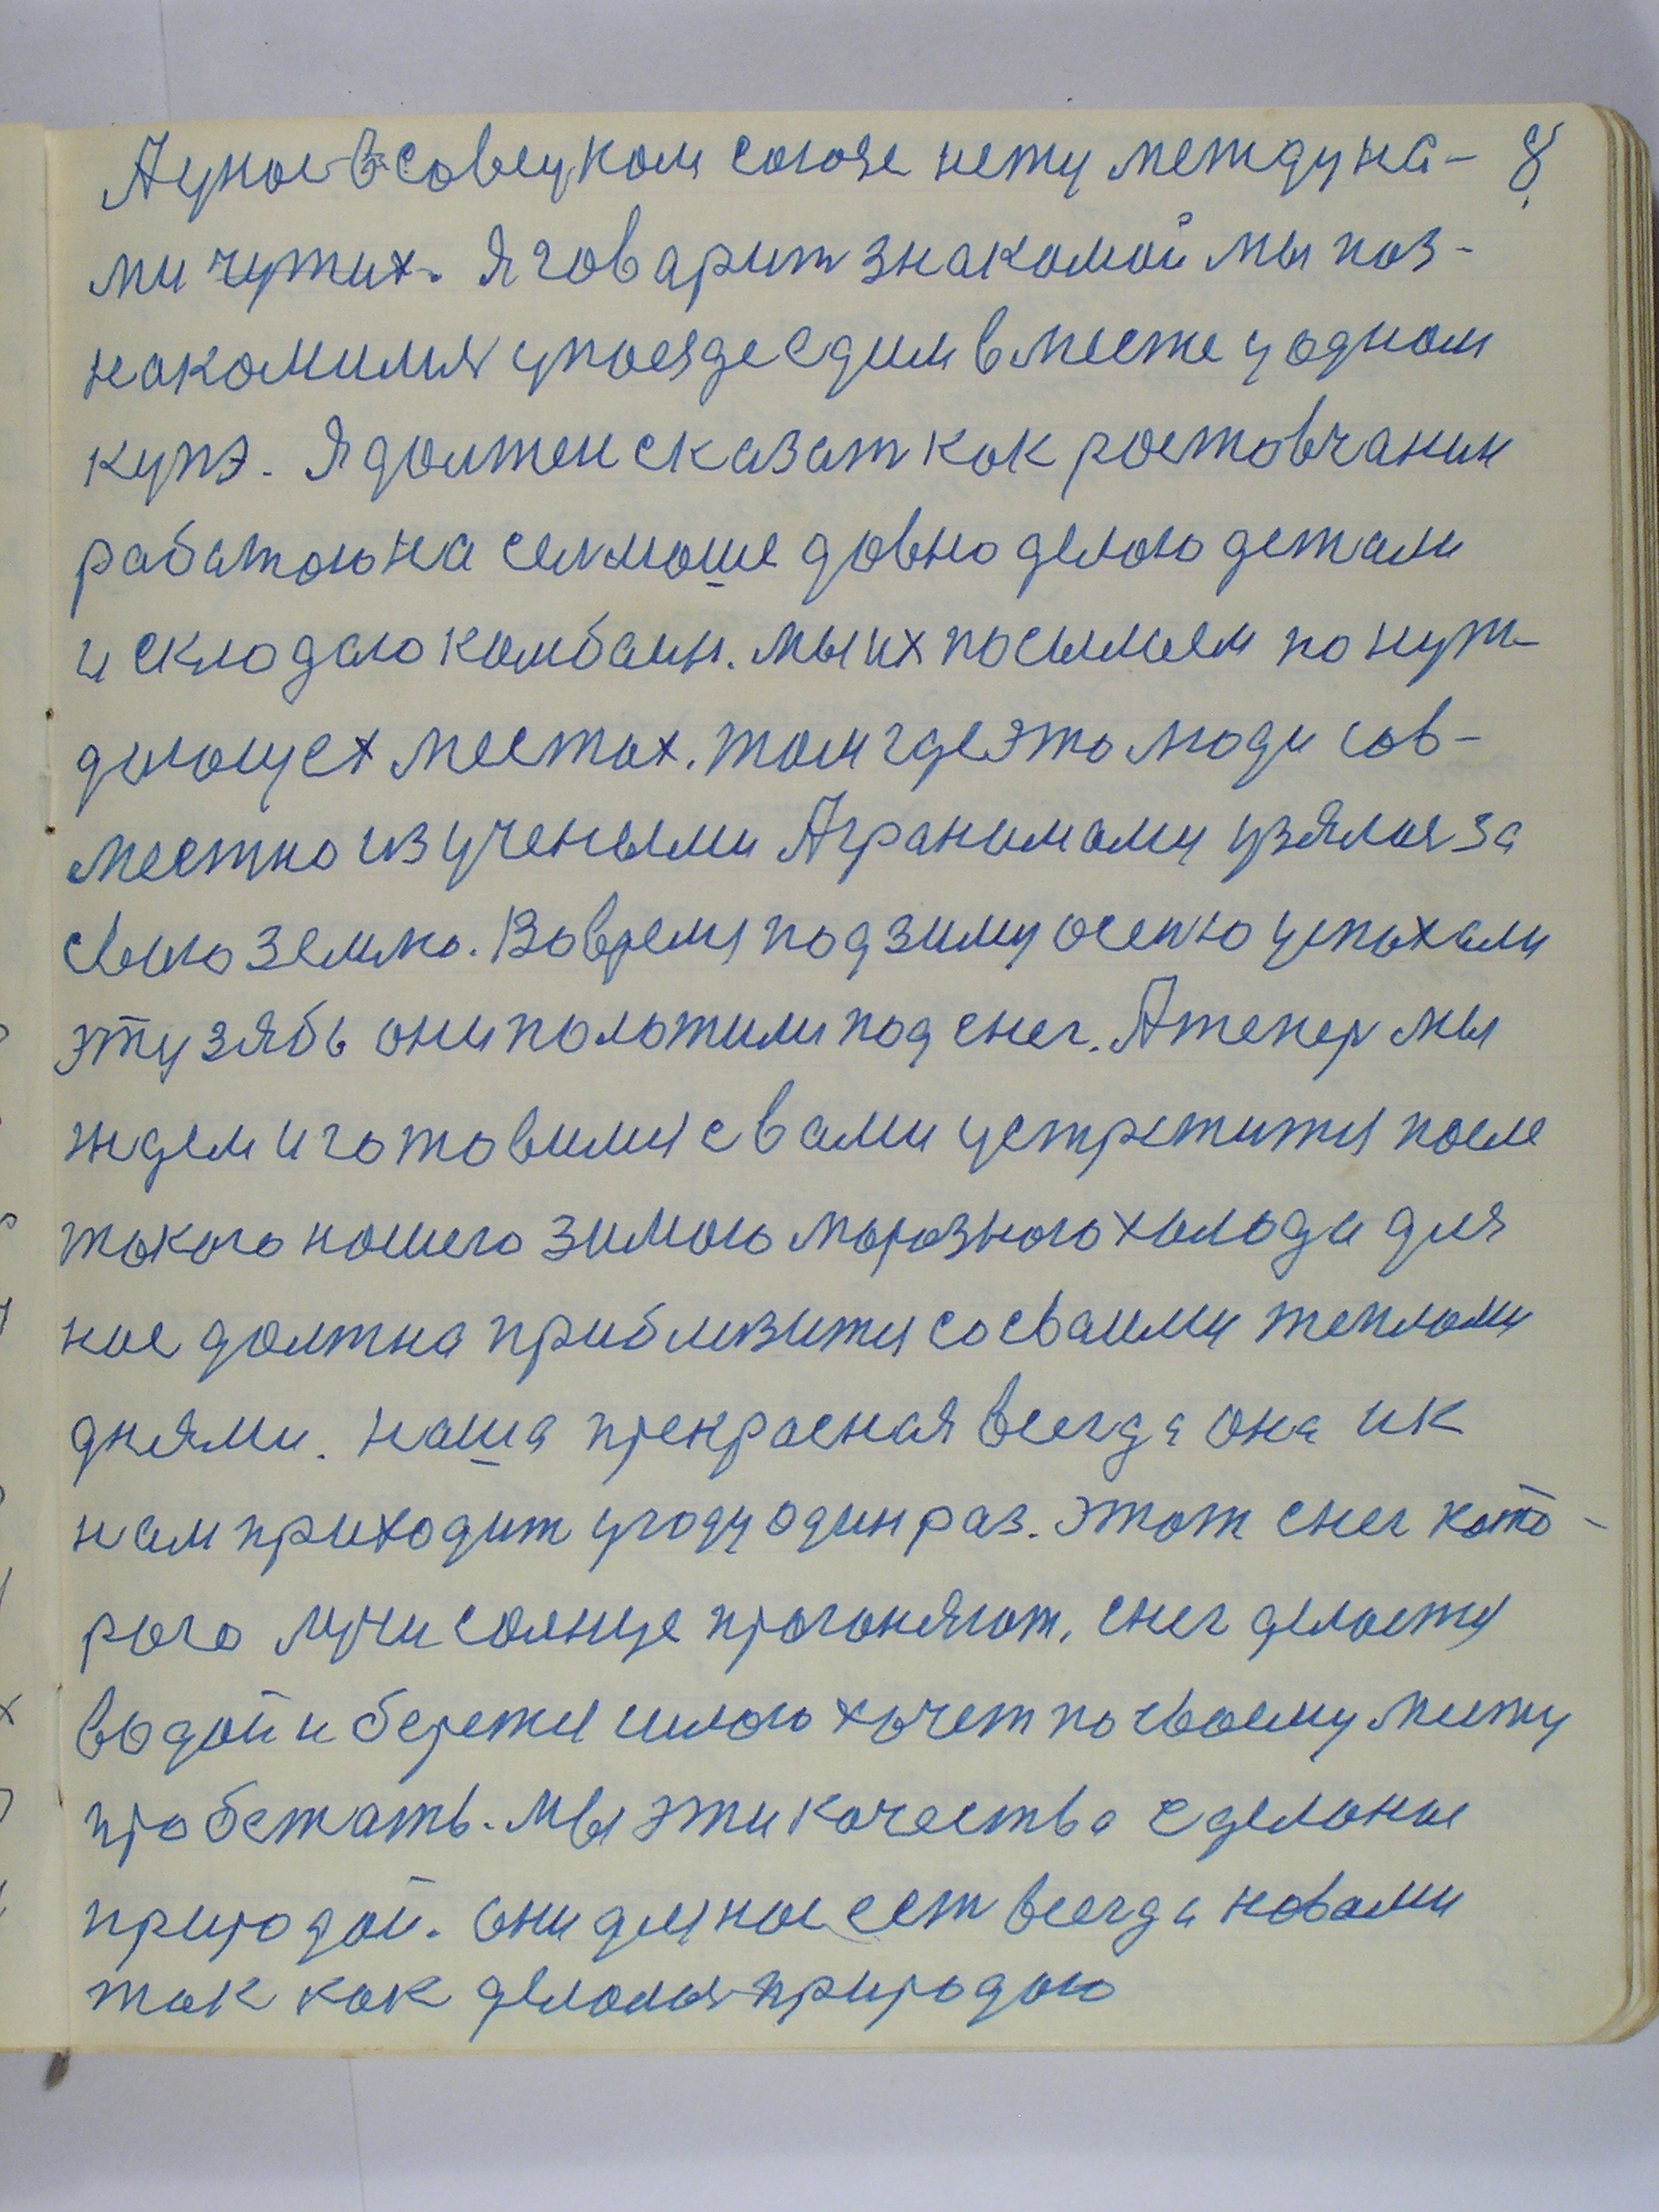 А унас в совецком союзе нету между на- 8
ми чужих. Я говарит знакомой мы поз-
накомимя упоезде едим вместе у одном
купэ. Я должен сказат как ростовчанин
работаю на селмаше давно делаю детали
и складаю камбаин. мы их посылаем по нуж-
дающех местах. там где это люди сов-
местно из учеными Агранимами узялися за
свыю землю. Вовремя под зиму осенью успахали
эту зябь они положили под снег. А тепер мы
ждем и готовимся с вами устретится после
такого нашего зимою морозного холода для
нас должна приблизится сосваими теплами
днями. наша прекрасная всегда она и к
нам приходит угоду один раз. этот снег кото-
рого лучи солнце прогоняют. снег делается
водой и бережся силою хочет по своему мижу
пробежать. мы эти качества сделаные
природой. они для нас ест всегда новами
так как делалися природою